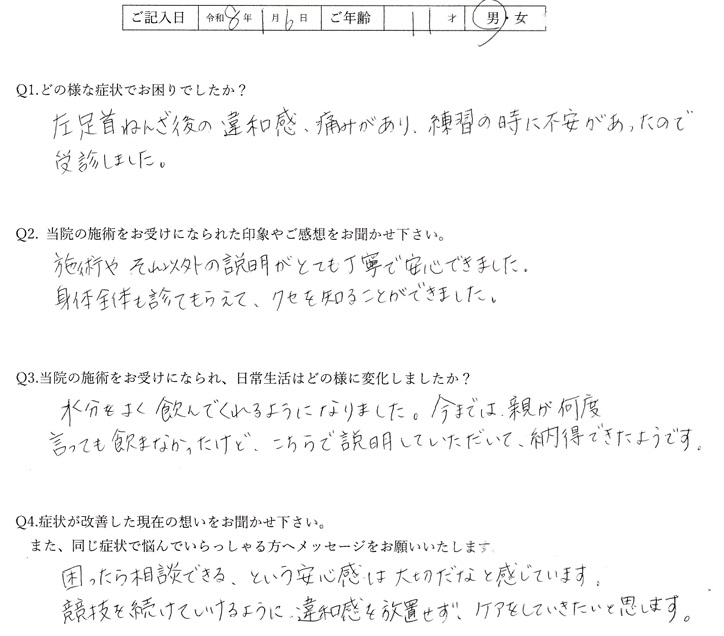 ご記入日 令和8年 1月6日 ご年齢 11才 男・女
Q1.どの様な症状でお困りでしたか？
左足首ねんざ後の違和感、痛みがあり、練習の時に不安があったので
受診しました。
Q2. 当院の施術をお受けになられた印象やご感想をお聞かせ下さい。
施術や それ以外の説明がとても丁寧で安心できました.
身体全体も診てもらえて、クセを知ることができました。
Q3.当院の施術をお受けになられ、日常生活はどの様に変化しましたか？
水分をよく飲んでくれるようになりました。今までは、親が何度
言っても飲まなかったけど、こちらで説明していただいて、納得できたようです.
Q4.症状が改善した現在の想いをお聞かせ下さい。
また、同じ症状で悩んでいらっしゃる方へメッセージをお願いいたします
困ったら相談できる、という安心感は大切だなと感じています.
競技を続けていけるように、違和感を放置せず、ケアをしていきたいと思します。